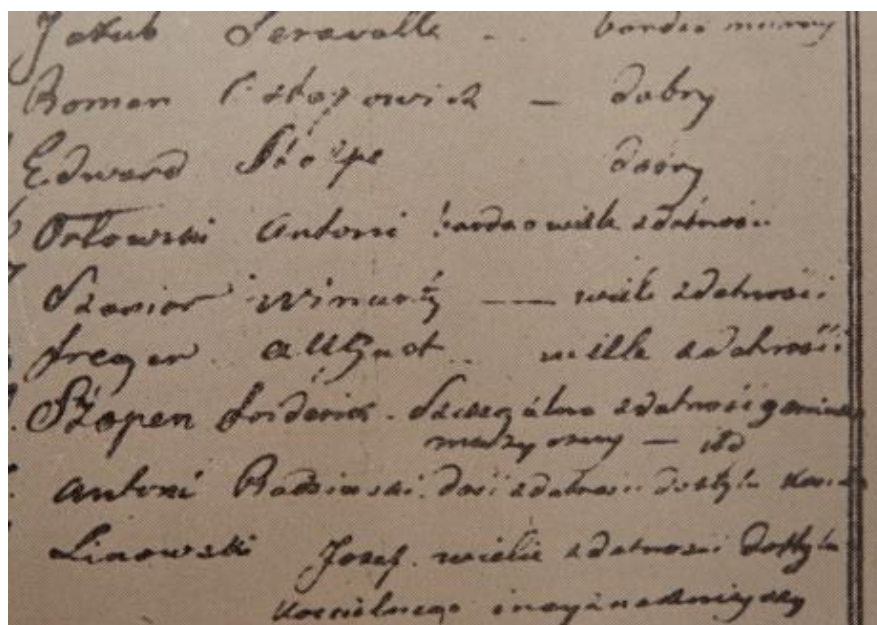 Jakub Seravalle - bardzo mierny
Roman - dobry
Edward Stolpe dobry
Orłowski Antoni bardzo wiele zdatności
Szanior Wincenty — wiele zdatności
Freyer August wielle zdatności
Szopen Friderik - Szczególna zdatność geniusz
muzyczny — itd
Antoni Radziński dość zdatności do stylu kościel
Linowski Josef wielie zdatności do stylu
kościelnego